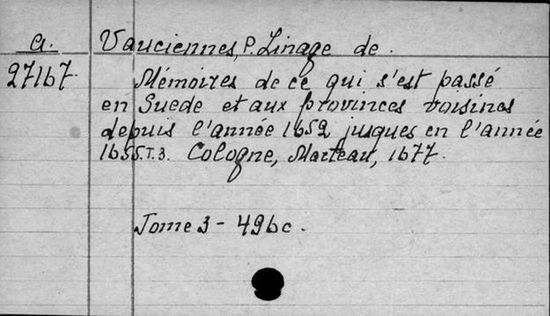 a. Vauciennes, P. Linage de.
27167. Mémoires de ce qui s'est passé
en Suede et aux provinces voisines
depuis l'année 1652 jusques en l'année
1655. T. 3. Cologne, Marteau, 1677.
Tome 3 - 496 c.